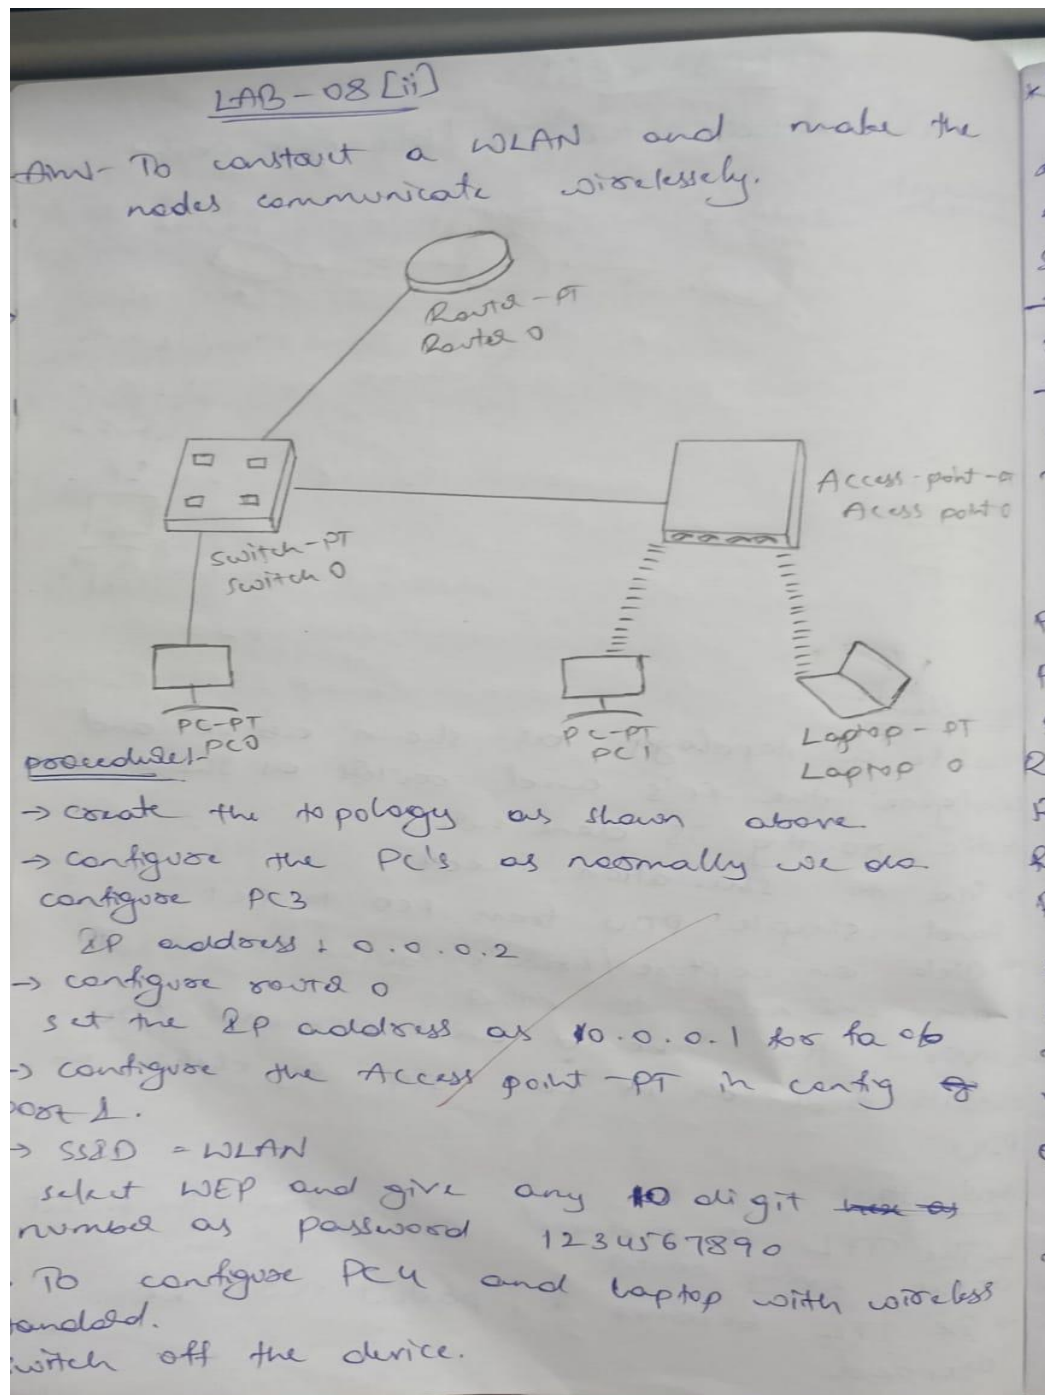 LAB-08 [ii]
Aim- To constuct a WLAN and make the
nodes communicate wirelessely.
Router-PT
Router 0
Access-point-
Acess point 0
Switch-PT
Switch 0
PC-PT
PC0
PC-PT
PC1
Laptop-PT
Laptop 0
procedure:-
→ create the topology as shown above.
→ configure the PC's as normally we do
configure PC3
IP address : 0.0.0.2
→ configure router 0
set the IP address as 10.0.0.1 for fa 0/0
→ configure the Access point-PT in config
port 1.
→ SSID = WLAN
select WEP and give any 10 digit hex as
number as password 1234567890
To configure PC4 and laptop with wireless
standard.
switch off the device.